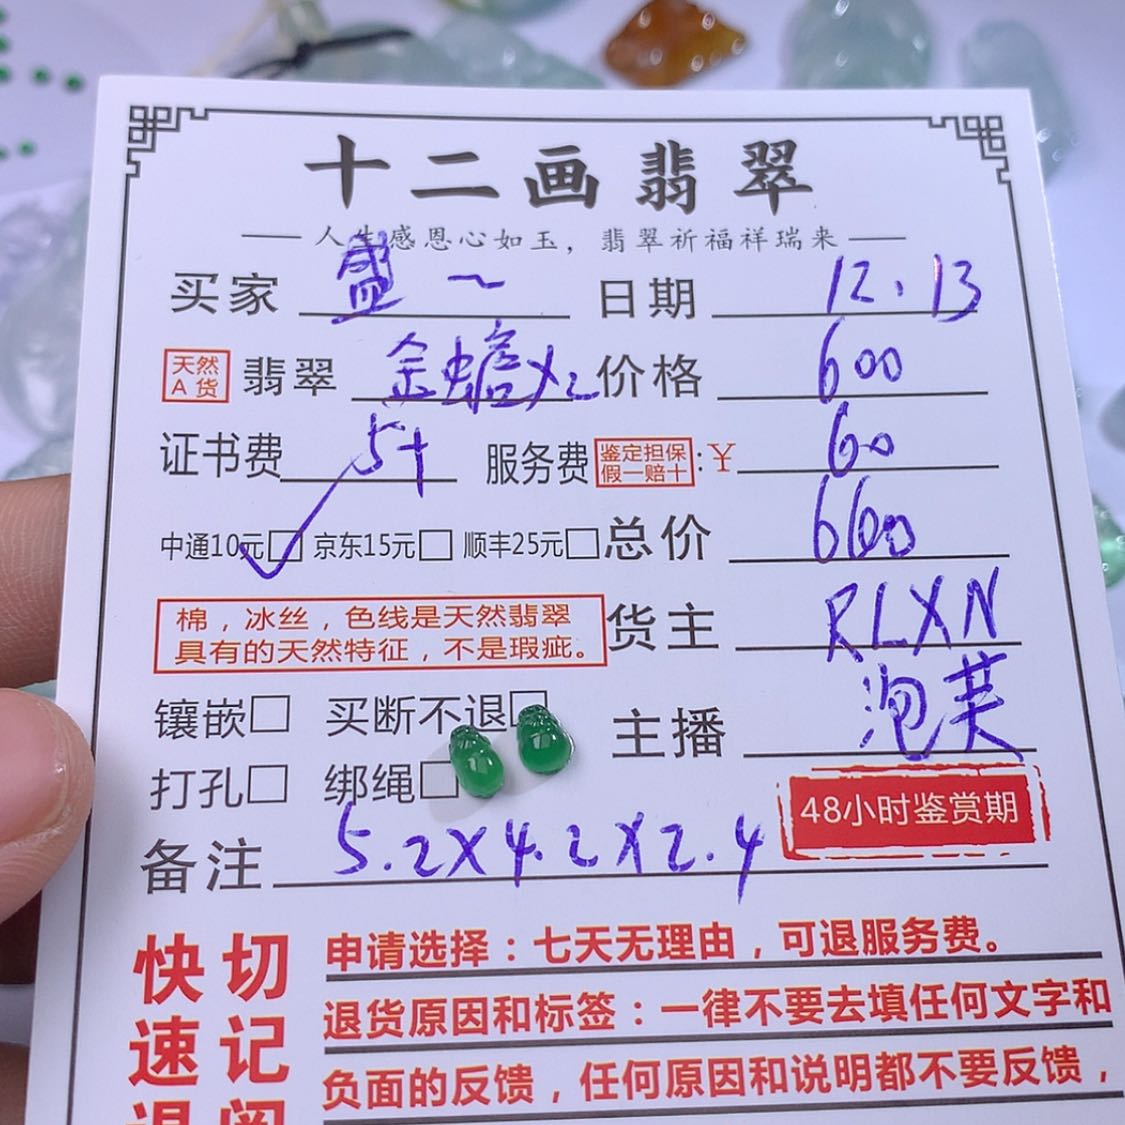 十二画翡翠
人生感恩心如玉，翡翠祈福祥瑞来
买家 盛~ 日期 12.13
天然A货 翡翠 金蟾x2 价格 600
证书费 5+ 服务费 鉴定担保 假一赔十 :￥ 60
中通10元□ 京东15元□ 顺丰25元□ 总价 660
棉，冰丝，色线是天然翡翠
具有的天然特征，不是瑕疵。
货主 RLXN
镶嵌□ 买断不退□
主播 泡芙
打孔□ 绑绳□
48小时鉴赏期
备注 5.2X4.2X2.4
快切
速记
退阅
申请选择：七天无理由，可退服务费。
退货原因和标签：一律不要去填任何文字和
负面的反馈，任何原因和说明都不要反馈，